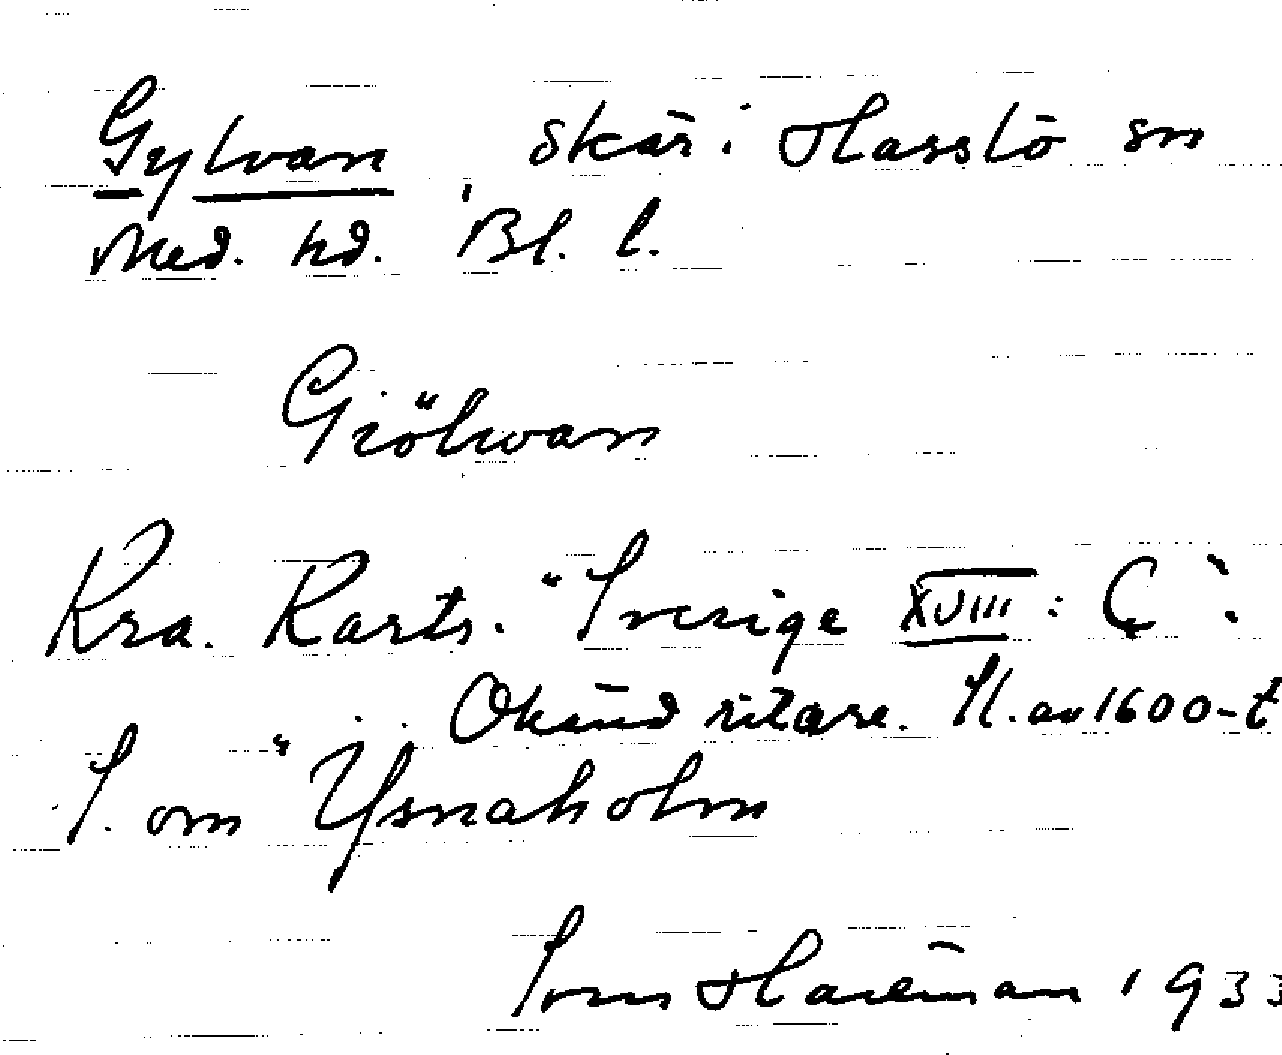 Gylvan, skär i Hasslö sn
Med. hd. Bl. l.
Giölwan
Kra. Karts. "Sverige XVIII: C".
Okänd ritare. Sl. av 1600-t
S. om "Ysnaholm
Harēman 1933